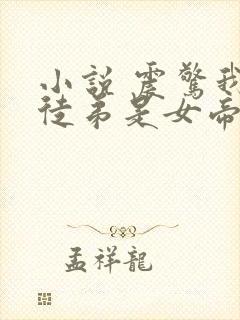 小說 震驚我
徒弟是女帝
孟祥龍